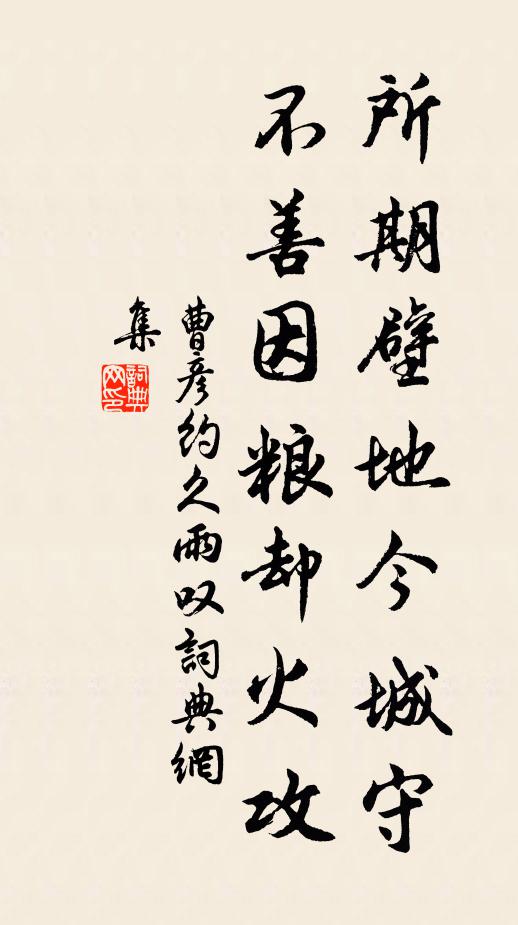 所期壁地今城守
不善因粮却火攻
曹彦约久雨叹詞典網
集
詞典网印